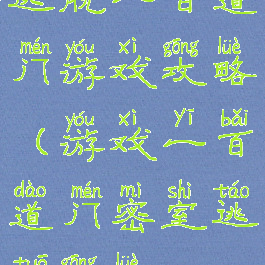 mén yóu xì gōng lüè
门游戏攻略
yóu xì yī bǎi
(游戏一百
dào mén mì shì táo
道门密室逃
tuō gōng lüè